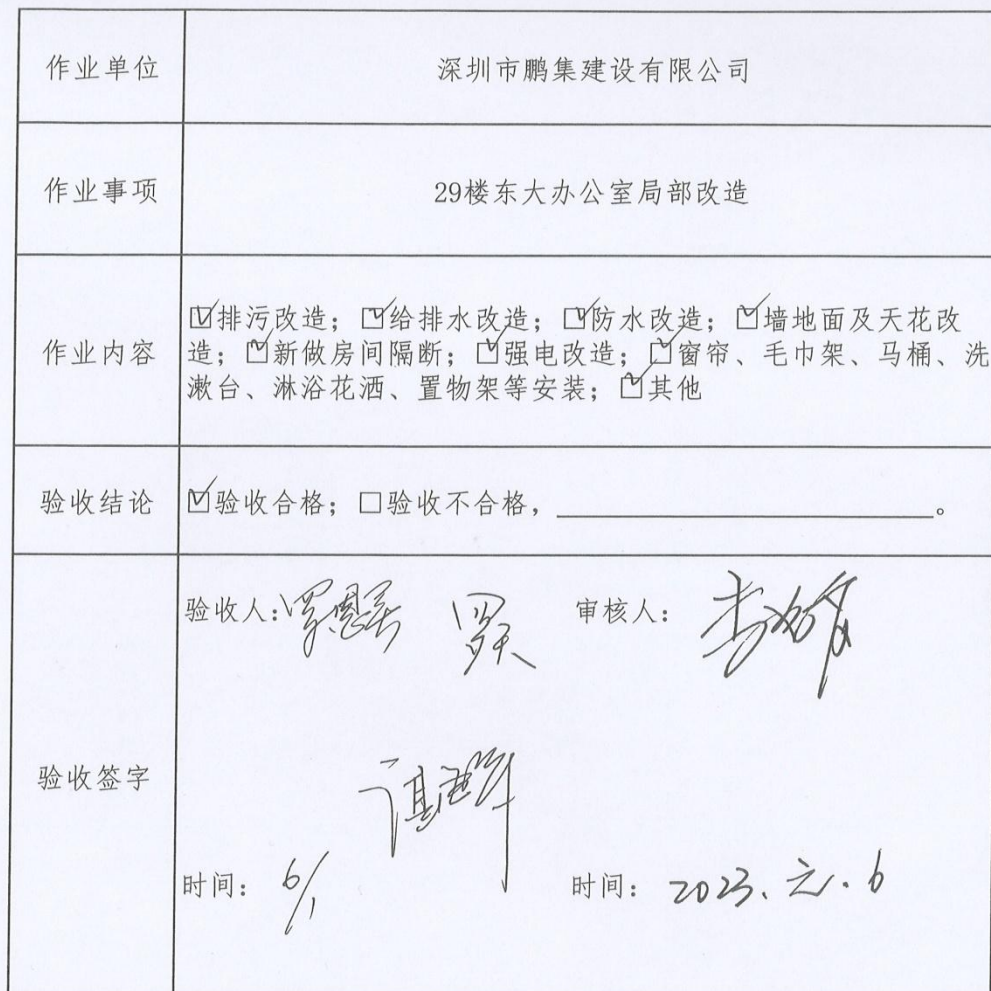 作业单位
深圳市鹏集建设有限公司
作业事项
29楼东大办公室局部改造
作业内容
☑排污改造；☑给排水改造；☑防水改造；☑墙地面及天花改
造；☑新做房间隔断；☑强电改造；☑窗帘、毛巾架、马桶、洗
漱台、淋浴花洒、置物架等安装；☑其他
验收结论
☑验收合格；□验收不合格，。
验收签字
验收人：
审核人：
时间：6/1
时间：2023.元.6